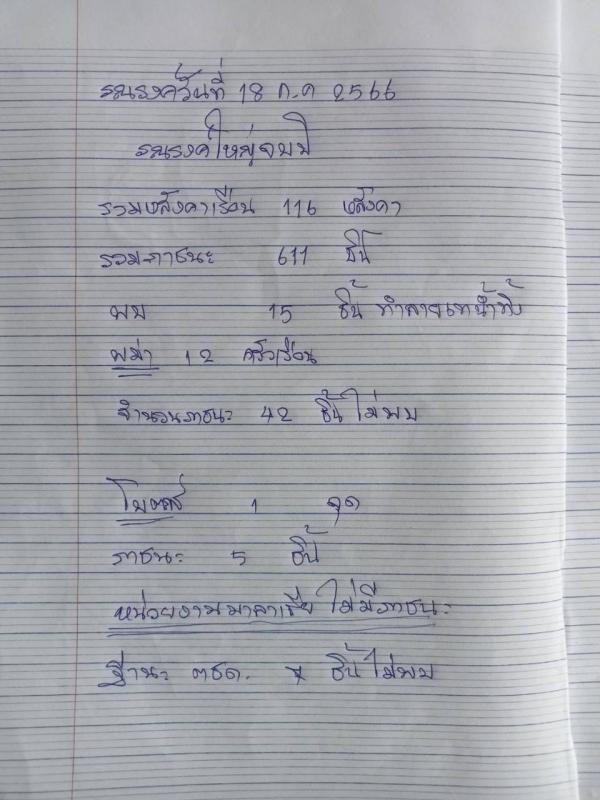 รณรงค์วันที่ 18 ก.ค 2566
รณรงค์ใหญ่จบปี
รวมหลังคาเรือน 116 หลังคา
รวมภาชนะ 611 ชิ้น
พบ 15 ชิ้น ทำลายเทน้ำทิ้ง
พม่า 12 ครัวเรือน
จำนวนภาชนะ 42 ชิ้น ไม่พบ
โบสถ์ 1 จุด
ภาชนะ 5 ชิ้น
หน่วยงานมาลาเรีย ไม่มีภาชนะ
ตชด. ชิ้น ไม่พบ